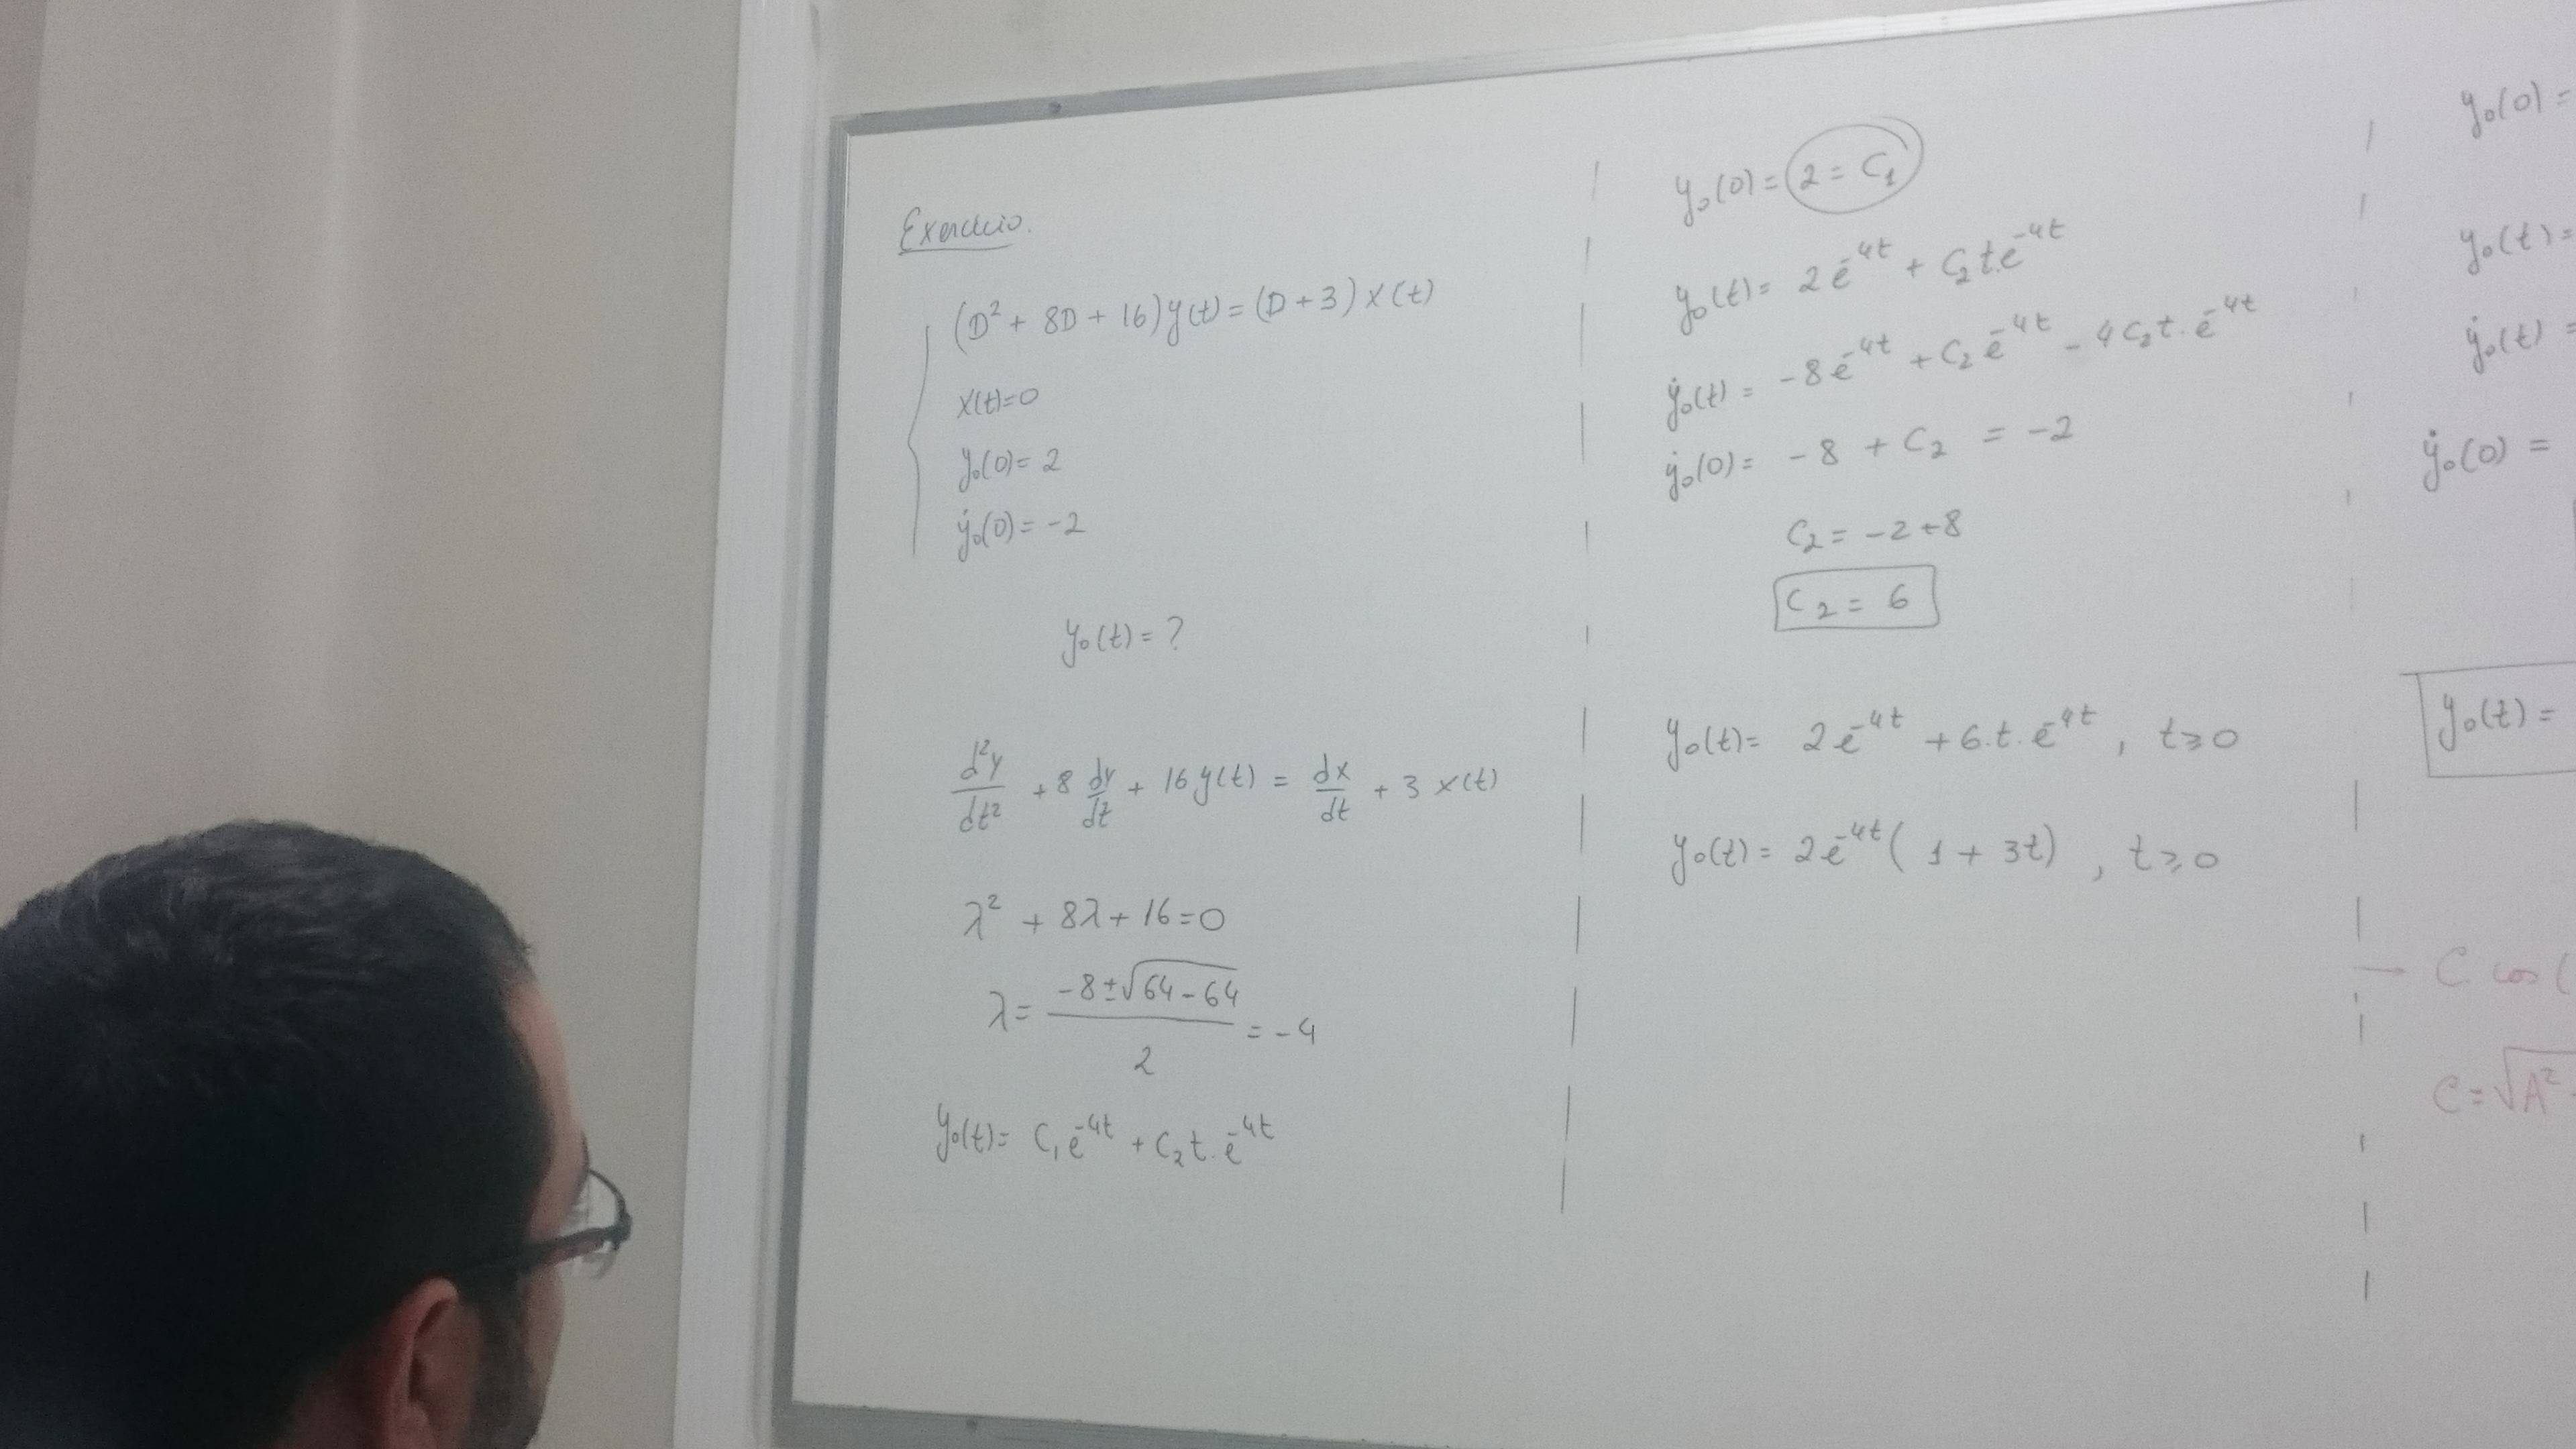 Exercício.
(D² + 8D + 16) y(t) = (D + 3) x(t)
x(t)=0
y₀(0) = 2
ẏ₀(0) = -2
y₀(t) = ?
d²y/dt² + 8 dy/dt + 16 y(t) = dx/dt + 3 x(t)
λ² + 8λ + 16 = 0
λ = (-8 ± √(64 - 64))/2 = -4
y₀(t) = C₁ e^(-4t) + C₂ t. e^(-4t)
y₀(0) = 2 = C₁
y₀(t) = 2 e^(-4t) + C₂ t. e^(-4t)
ẏ₀(t) = -8 e^(-4t) + C₂ e^(-4t) - 4 C₂ t. e^(-4t)
ẏ₀(0) = -8 + C₂ = -2
C₂ = -2 + 8
C₂ = 6
y₀(t) = 2 e^(-4t) + 6. t. e^(-4t) , t ≥ 0
y₀(t) = 2 e^(-4t) ( 1 + 3t) , t ≥ 0
y₀(0) =
y₀(t) =
ẏ₀(t) =
ẏ₀(0) =
y₀(t) =
→ C. cos (
C = √A²